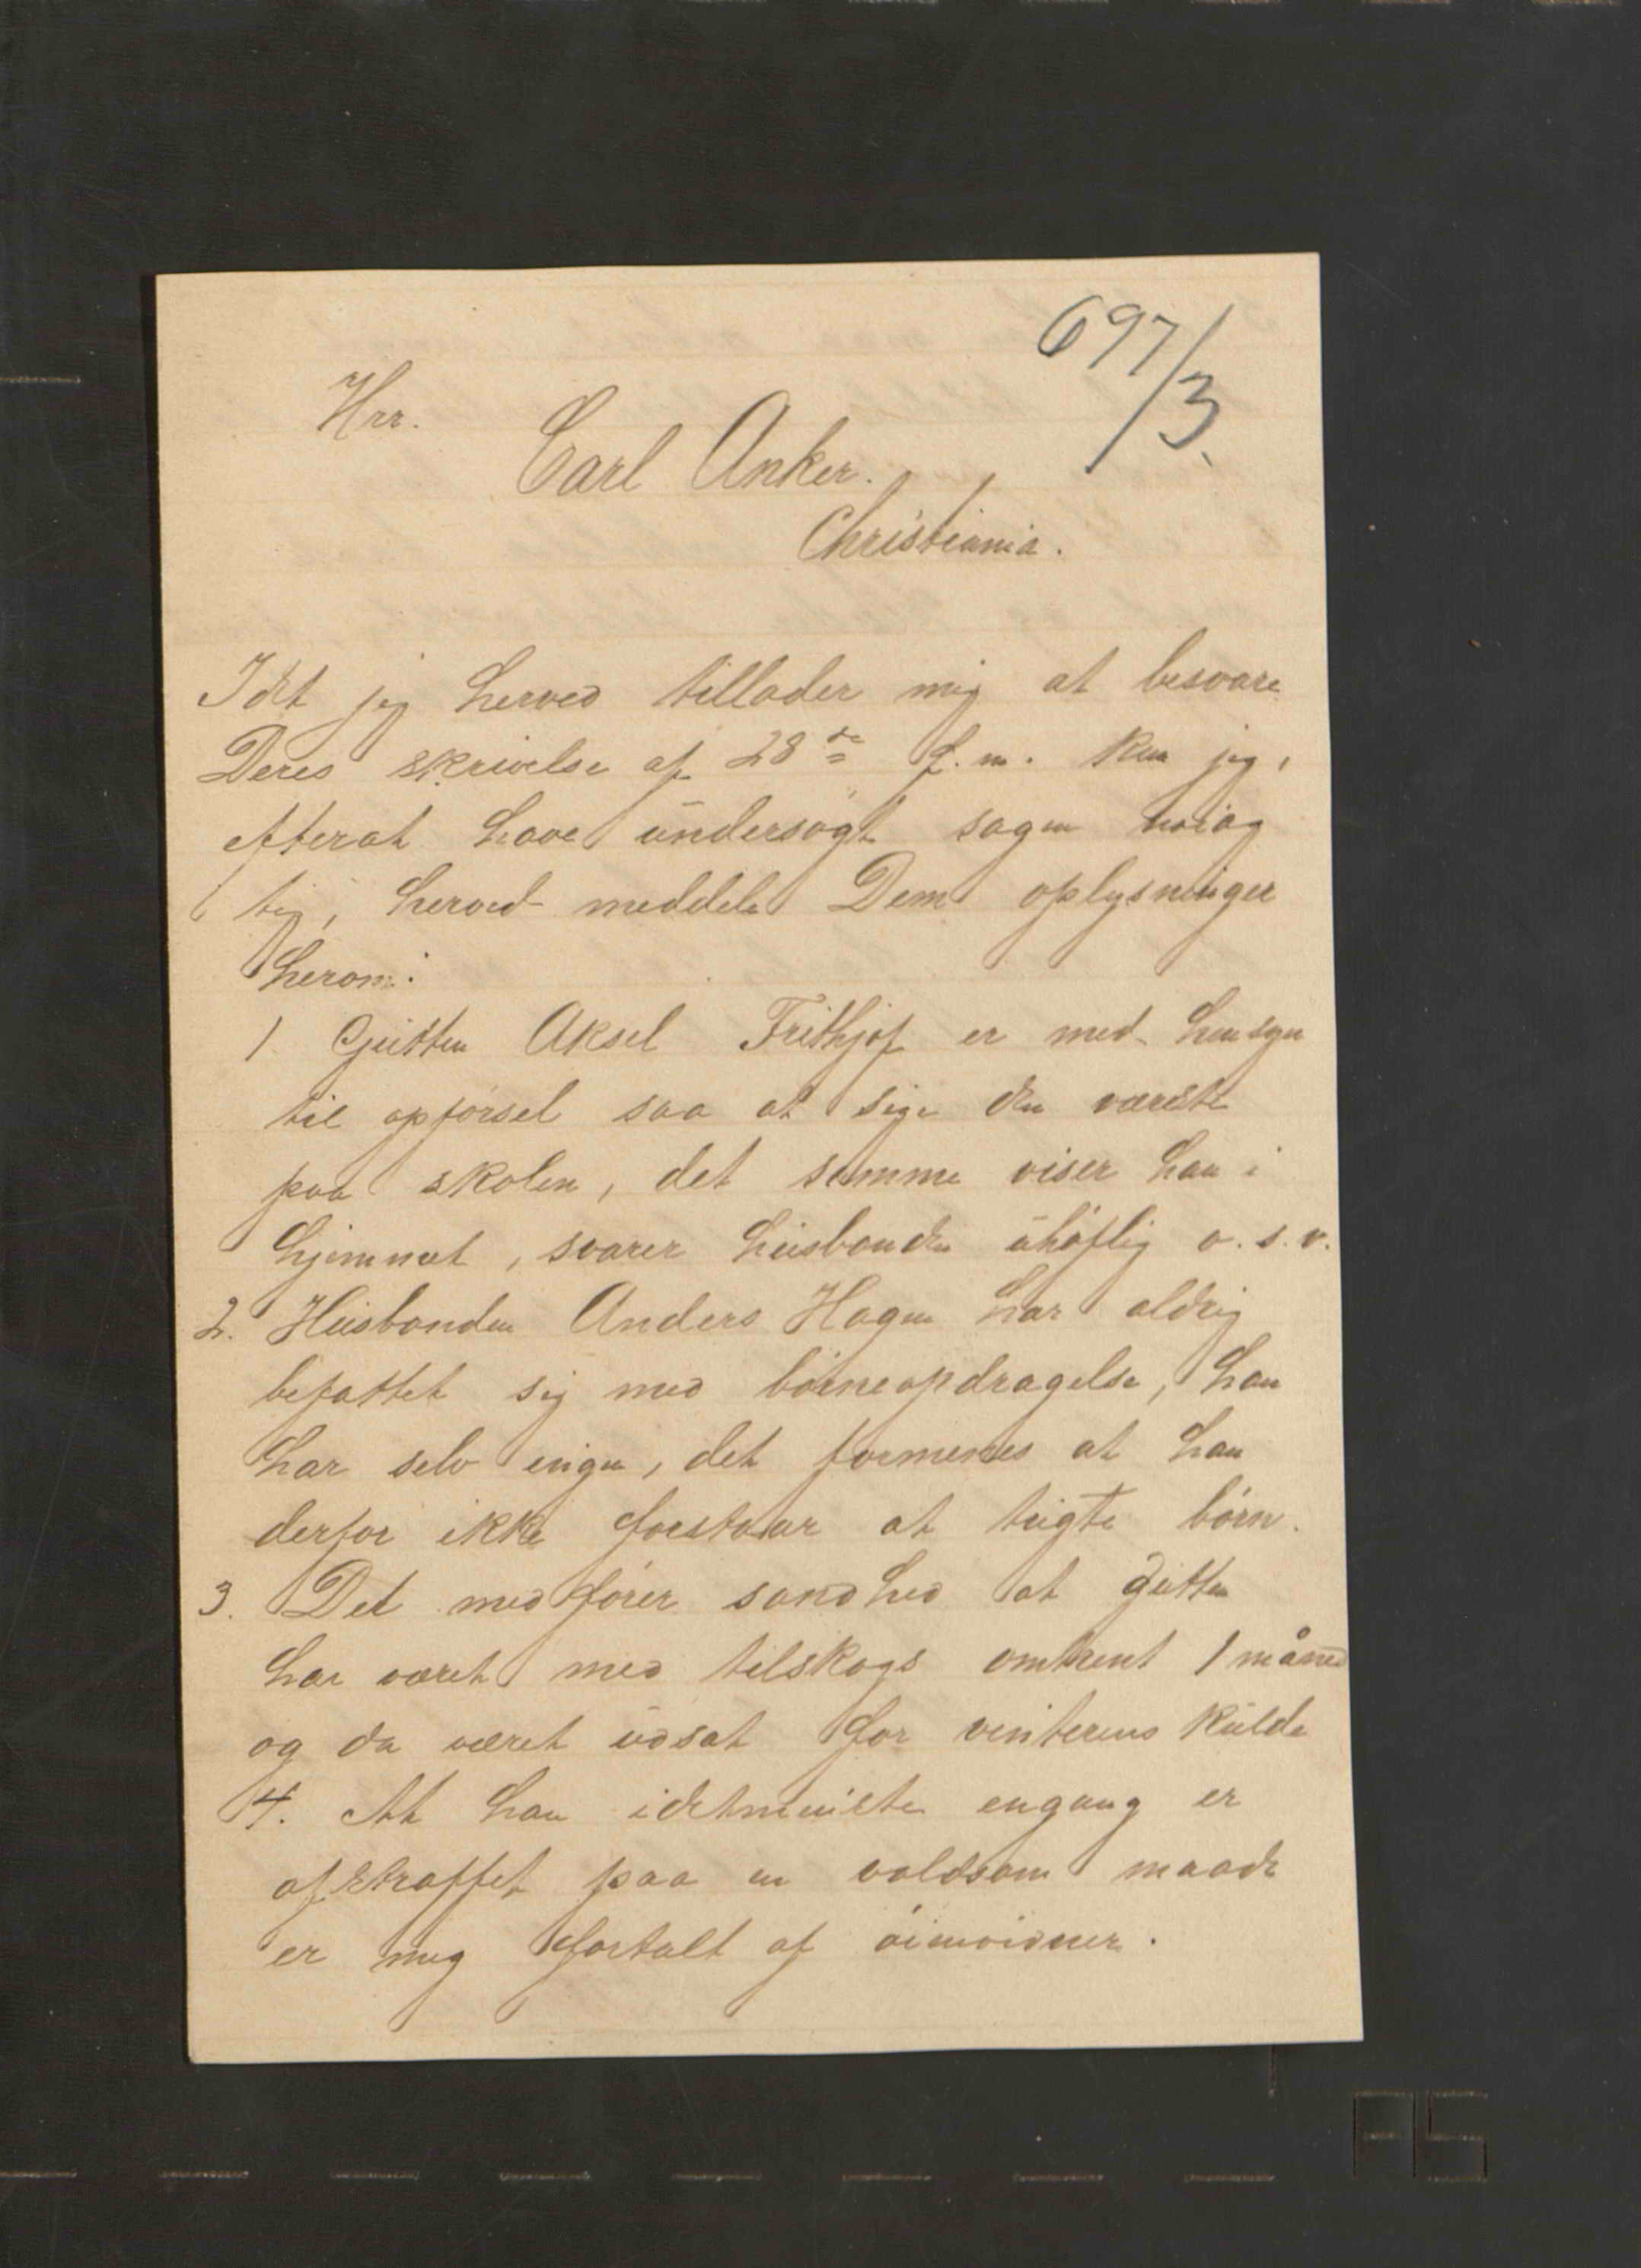 697/3.
Hrr.
Carl Anker.
Christiania.
Idet jeg herved tillader mig at besvare
Deres skrivelse af 28de f.m. kan jeg,
efterat have undersøgt sagen nøiag
tig, herved meddele Dem oplysninger
herom:
1 Gutten Aksel Frithjof er med hensyn
til opførsel saa at sige den værste
paa skolen, det samme viser han i
hjemmet, svarer husbonden uhøflig o.s.v.
2. Husbonden Anders Hagen har aldrig
befattet sig med børneopdragelse, han
har selv ingen, det formenes at han
derfor ikke forstaar at tugte børn.
3. Det medfører sandhed at gutten
har været med tilskogs omtrent 1 måned
og da været udsat for vinterens kulde
4. At han idetminste engang er
afstraffet paa en voldsom maade
er mig fortalt af øienvidner.